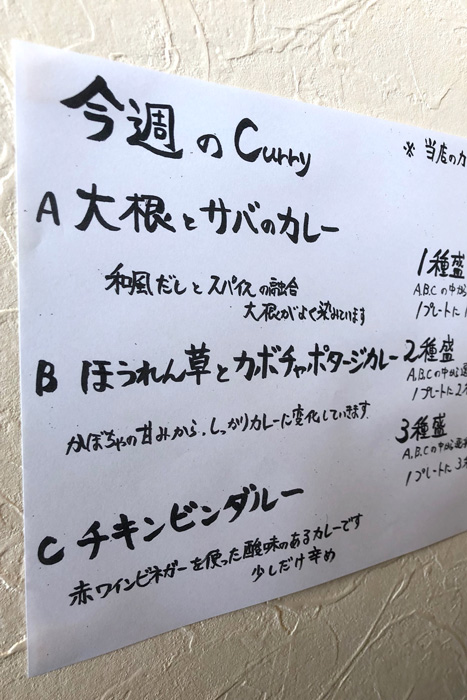 今週のCurry
A 大根とサバのカレー
和風だしとスパイスの融合
大根がよく染みています
B ほうれん草とカボチャポタージュカレー
かぼちゃの甘みから、しっかりカレーに変化していきます
C チキンビンダルー
赤ワインビネガーを使った酸味のあるカレーです
少しだけ辛め
※ 当店のカ
1種盛
A.B.Cの中から
1プレートに1
2種盛
A.B.Cの中から選
1プレートに2
3種盛
A.B.Cの中から選
1プレートに3